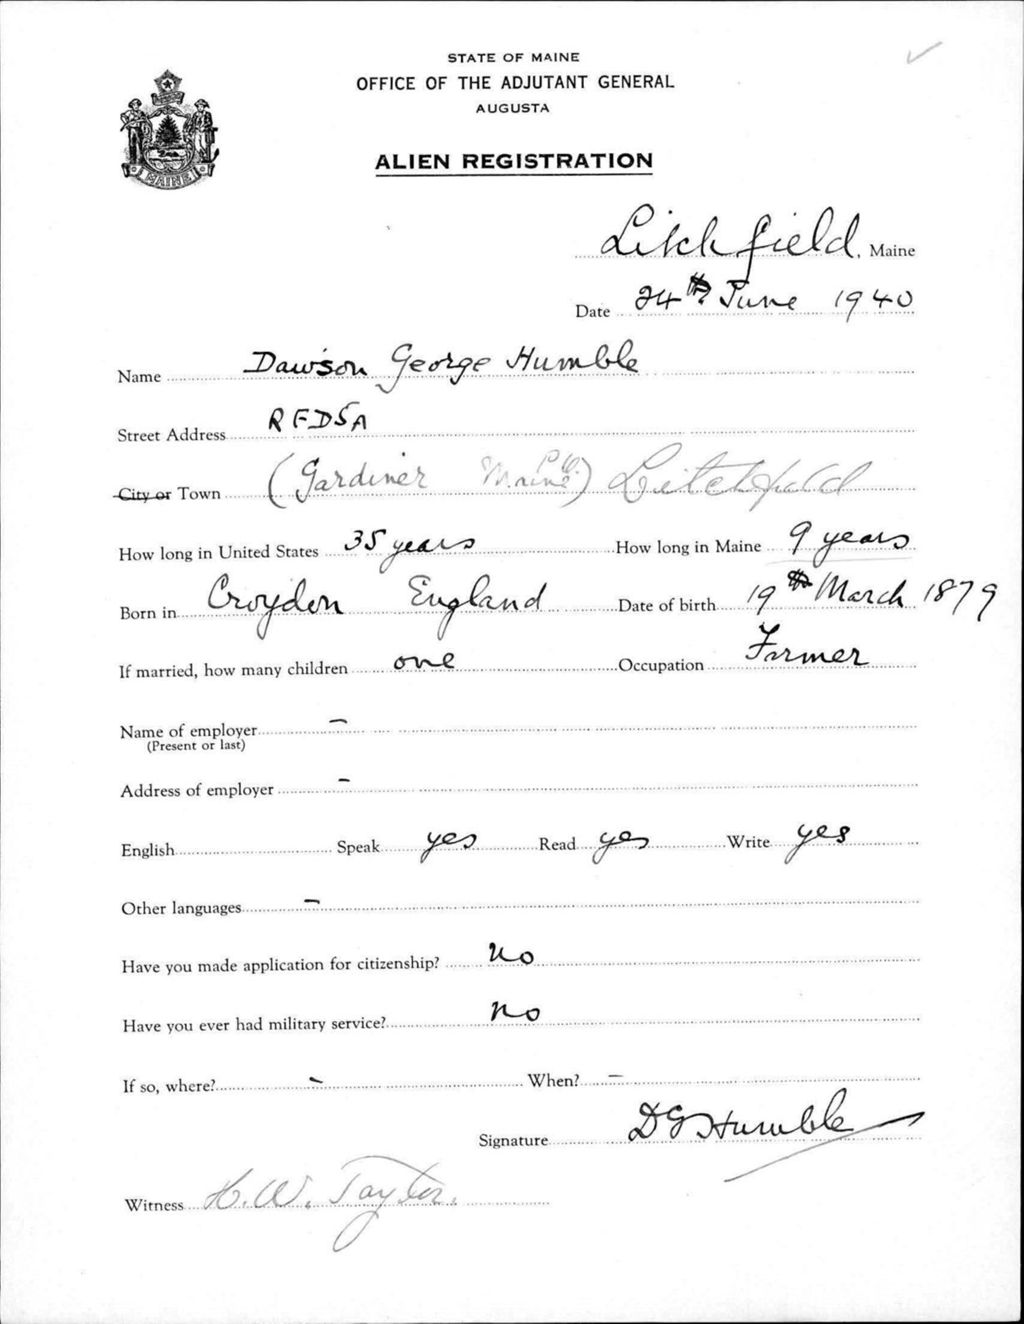 STATE OF MAINE
OFFICE OF THE ADJUTANT GENERAL
AUGUSTA
ALIEN REGISTRATION
MAINE
Litchfield, Maine
Date 24th June 1940
Name Dawson George Humble
Street Address RFD5A
City or Town (Gardiner Maine P.O.) Litchfield
How long in United States 35 years How long in Maine 9 years
Born in Croydon England Date of birth 19th March 1879
If married, how many children one Occupation Farmer
Name of employer –
(Present or last)
Address of employer –
English Speak yes Read yes Write yes
Other languages –
Have you made application for citizenship? No
Have you ever had military service? no
If so, where? – When? –
Signature DG Humble
Witness H.W. Taylor.